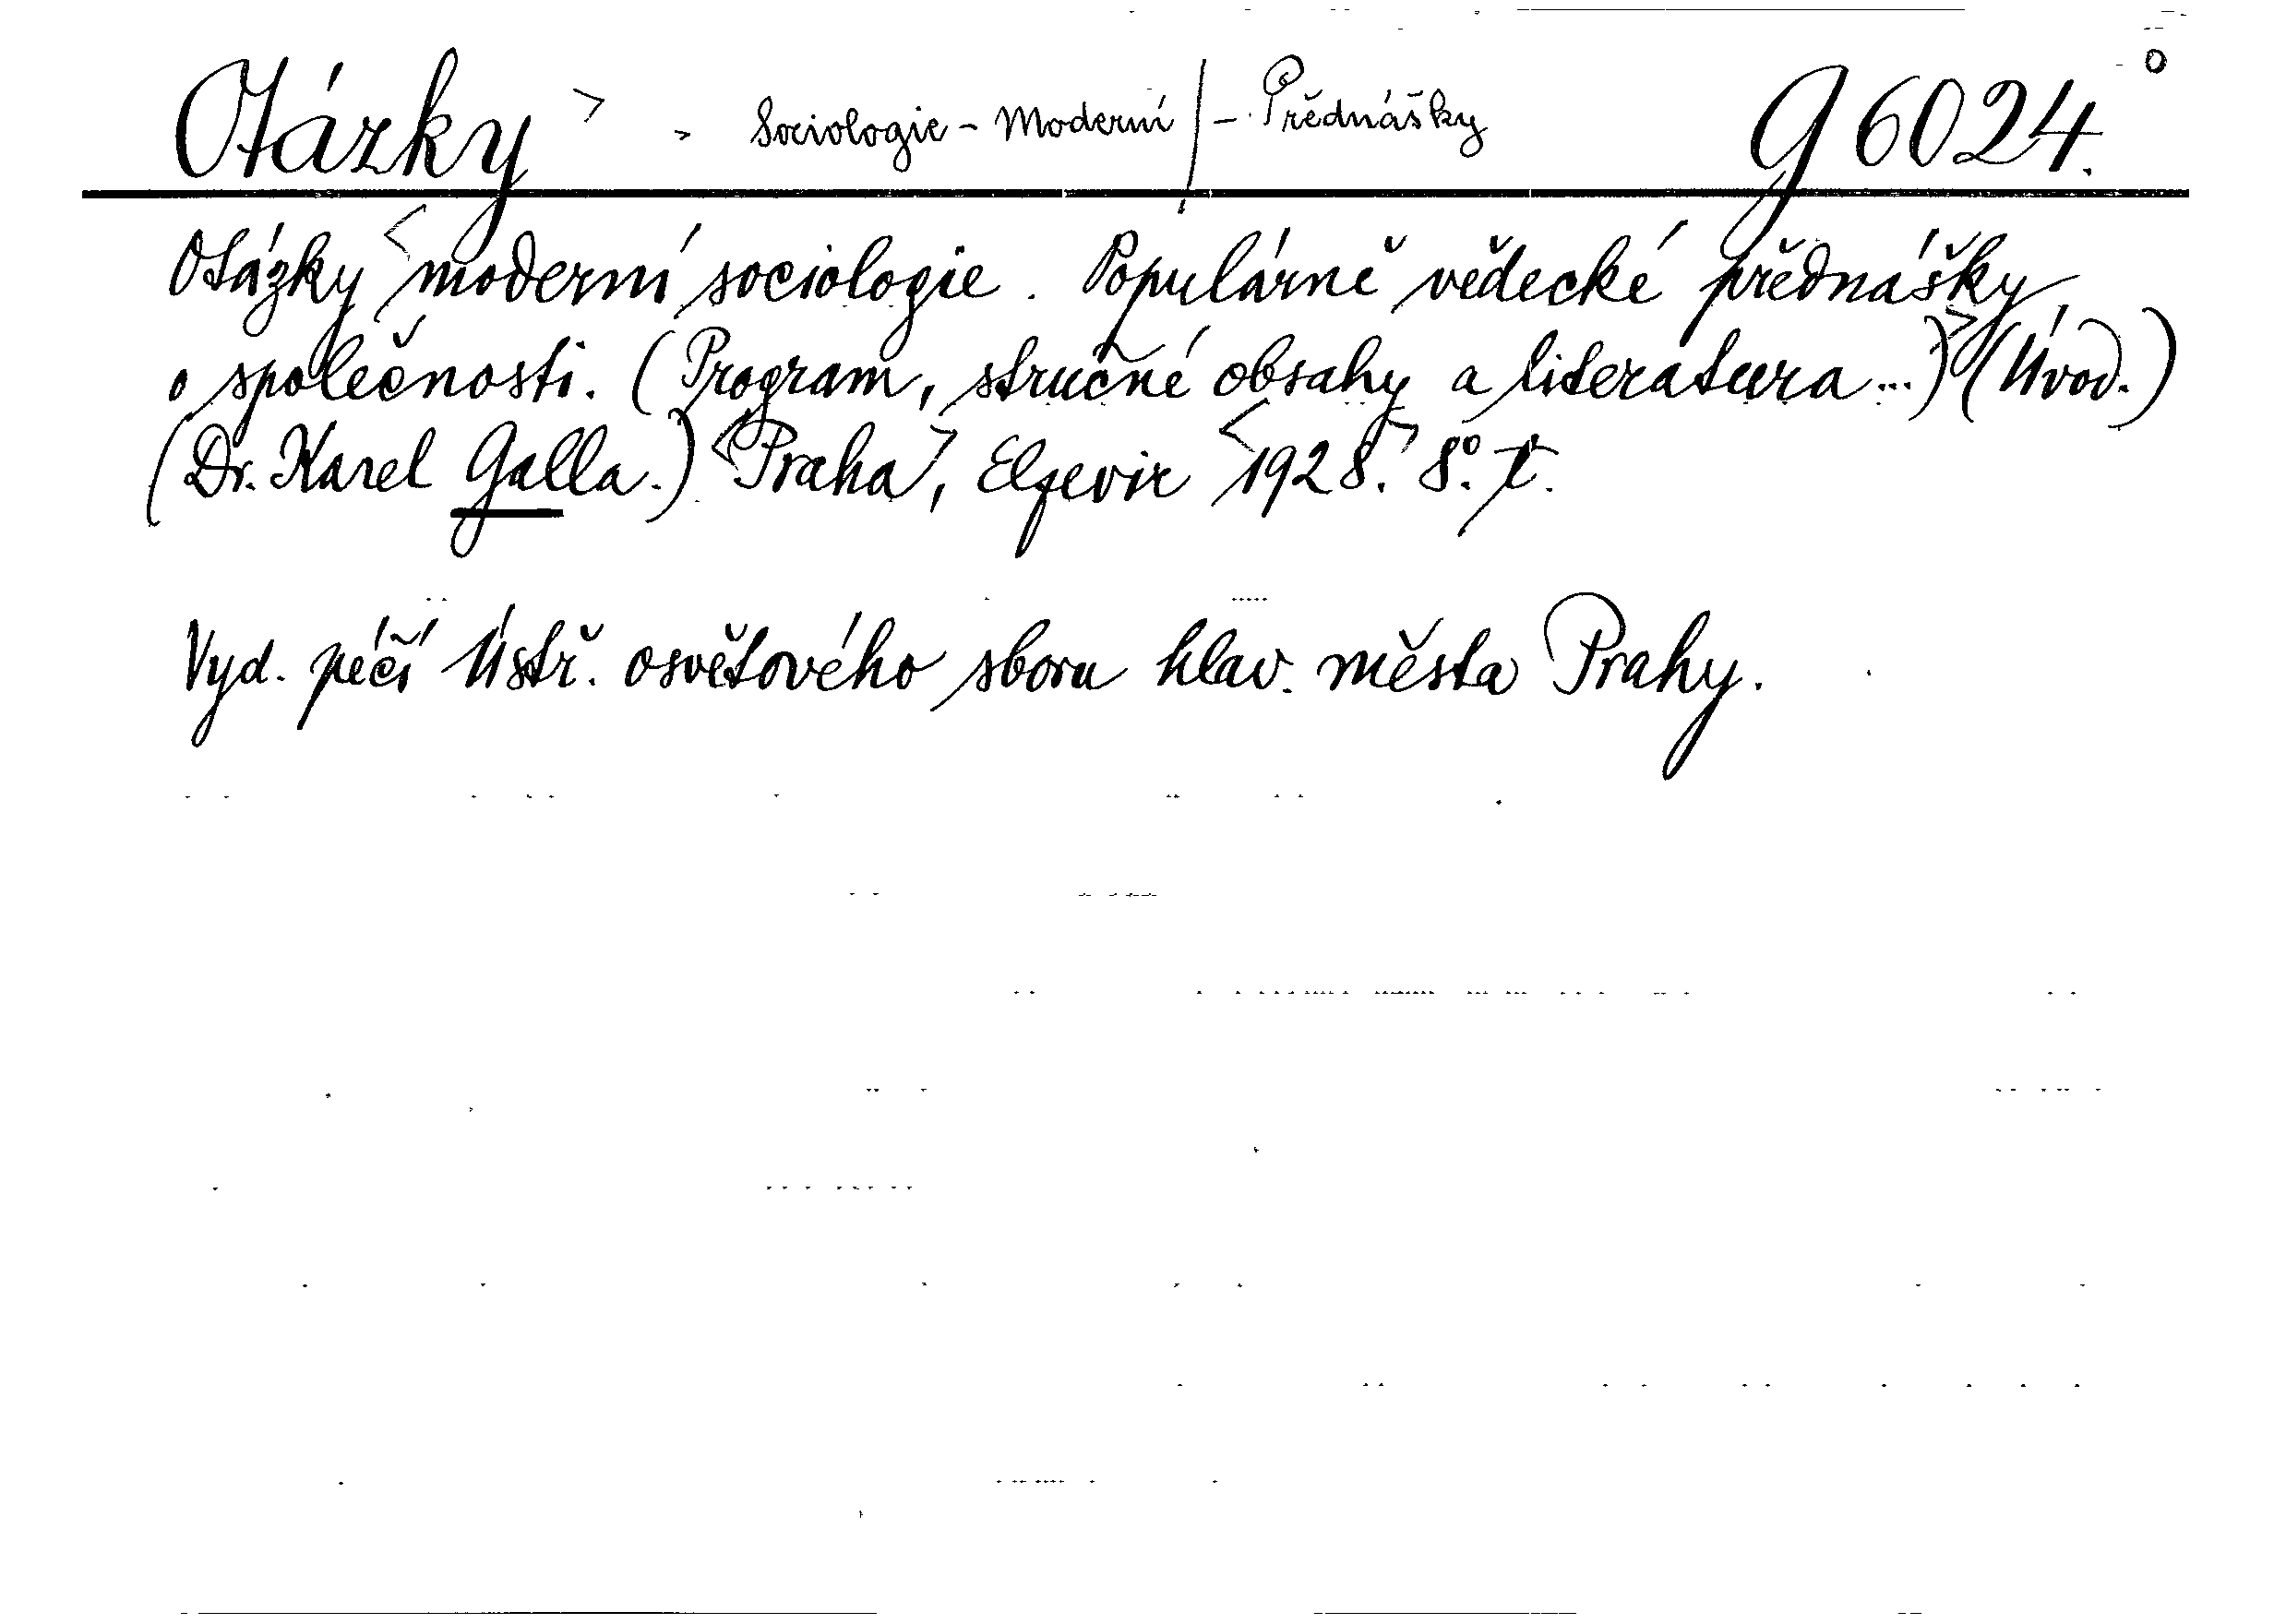 Otázky > - Sociologie - Moderní / - Přednášky G 6024.
Otázky <moderní sociologie. Populárně vědecké přednášky
o společnosti. (Program, stručné obsahy a literatura...)> (Úvod.)
(Dr. Karel Galla.) <Praha>, Elzevir <1928.> 8°. t.
Vyd. péčí Ústř. osvětového sboru hlav. města Prahy.